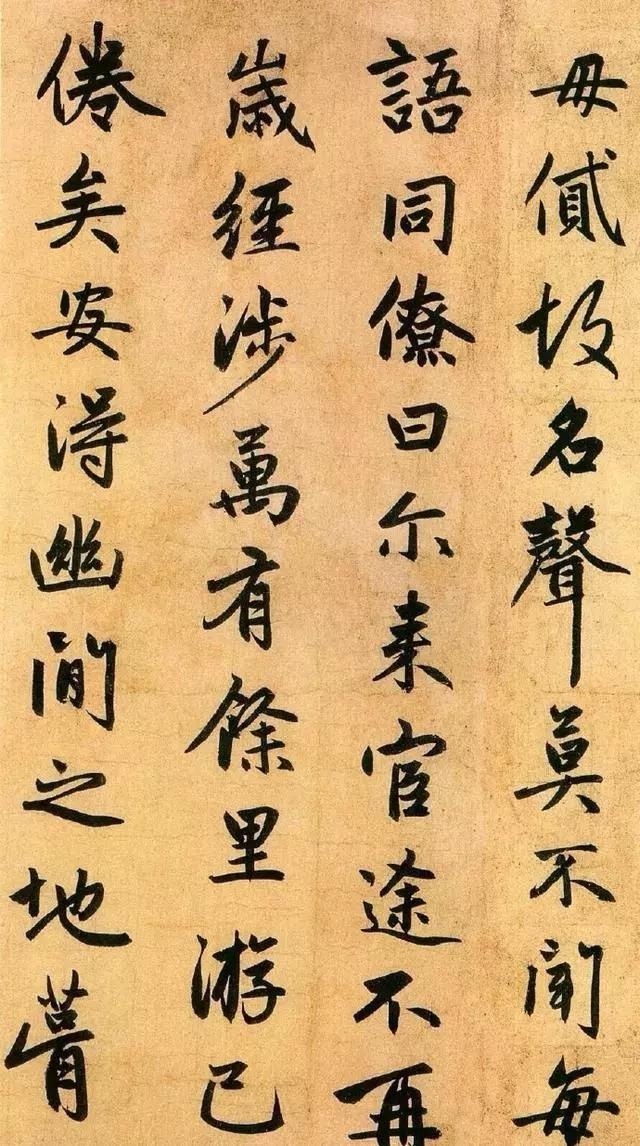 毋貸故名聲莫不聞每
語同僚曰尔来宦途不再
歲經涉萬有餘里游已
倦矣安得幽閒之地